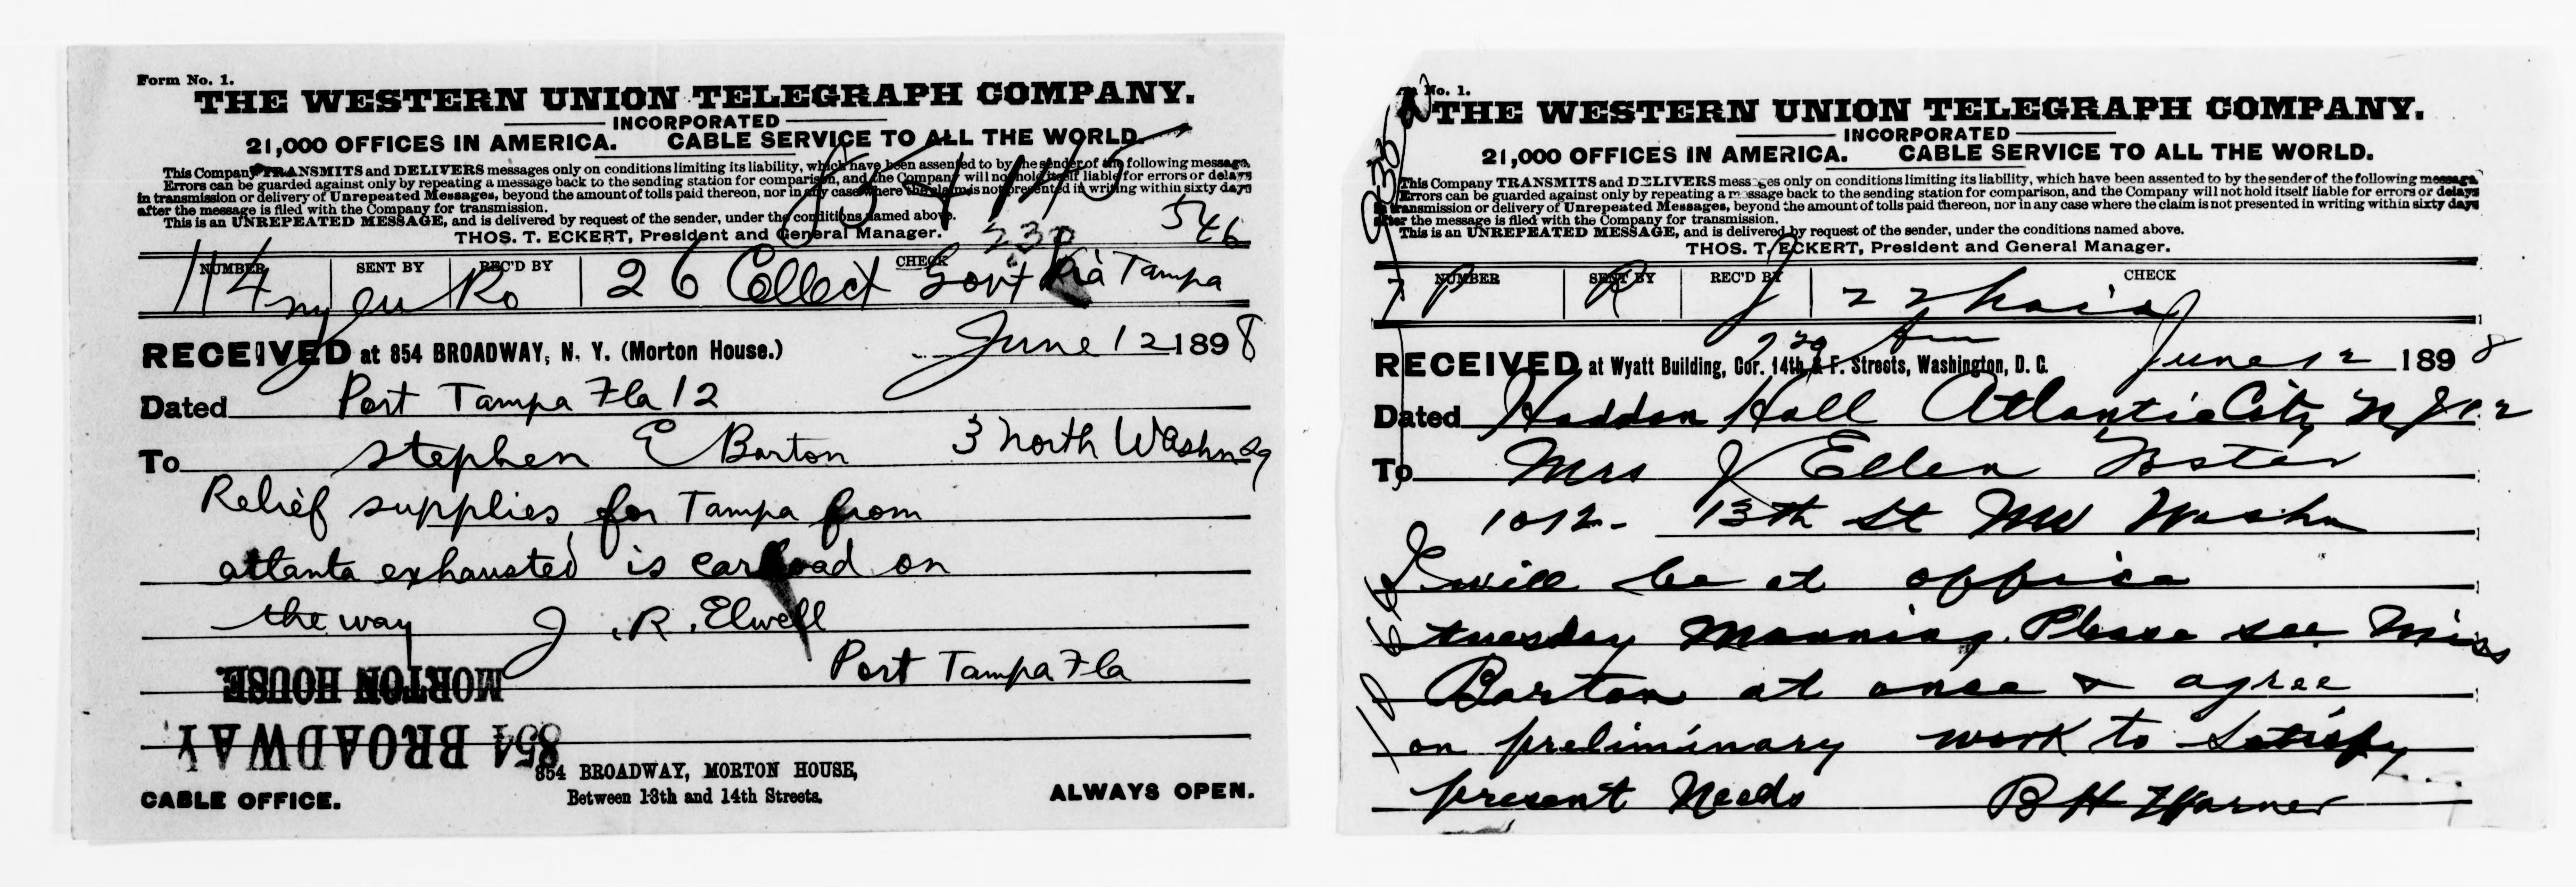 Form No. 1.
THE WESTERN UNION TELEGRAPH COMPANY.
INCORPORATED
21,000 OFFICES IN AMERICA. CABLE SERVICE TO ALL THE WORLD.
This Company TRANSMITS and DELIVERS messages only on conditions limiting its liability, which have been assented to by the sender of the following message.
Errors can be guarded against only by repeating a message back to the sending station for comparison, and the Company will not hold itself liable for errors or delays
in transmission or delivery of Unrepeated Messages, beyond the amount of tolls paid thereon, nor in any case where the claim is not presented in writing within sixty days
after the message is filed with the Company for transmission.
This is an UNREPEATED MESSAGE, and is delivered by request of the sender, under the conditions named above.
THOS. T. ECKERT, President and General Manager.
230 546
NUMBER SENT BY REC'D BY CHECK
114 ny Ro 26 Collect Govt Via Tampa
RECEIVED at 854 BROADWAY, N. Y. (Morton House.) June 12 1898
Dated Port Tampa Fla 12
To Stephen E Barton 3 North Washn Sq
Relief supplies for Tampa from
atlanta exhausted is carload on
the way J. R. Elwell
Port Tampa Fla
MORTON HOUSE
854 BROADWAY
854 BROADWAY, MORTON HOUSE,
Between 13th and 14th Streets.
CABLE OFFICE. ALWAYS OPEN.
No. 1.
THE WESTERN UNION TELEGRAPH COMPANY.
INCORPORATED
21,000 OFFICES IN AMERICA. CABLE SERVICE TO ALL THE WORLD.
This Company TRANSMITS and DELIVERS messages only on conditions limiting its liability, which have been assented to by the sender of the following message.
Errors can be guarded against only by repeating a message back to the sending station for comparison, and the Company will not hold itself liable for errors or delays
in transmission or delivery of Unrepeated Messages, beyond the amount of tolls paid thereon, nor in any case where the claim is not presented in writing within sixty days
after the message is filed with the Company for transmission.
This is an UNREPEATED MESSAGE, and is delivered by request of the sender, under the conditions named above.
THOS. T. ECKERT, President and General Manager.
NUMBER SENT BY REC'D BY CHECK
7 P R J 22 paid
RECEIVED at Wyatt Building, Cor. 14th & F. Streets, Washington, D. C. June 12 1898
Dated Haddon Hall Atlantic City N J 12
To Mrs J Ellen Foster
1012- 13th St NW Washn
I will be at office
tuesday Morning. Please see Miss
Barton at once & agree
on preliminary work to Satisfy
present Needs B H Warner